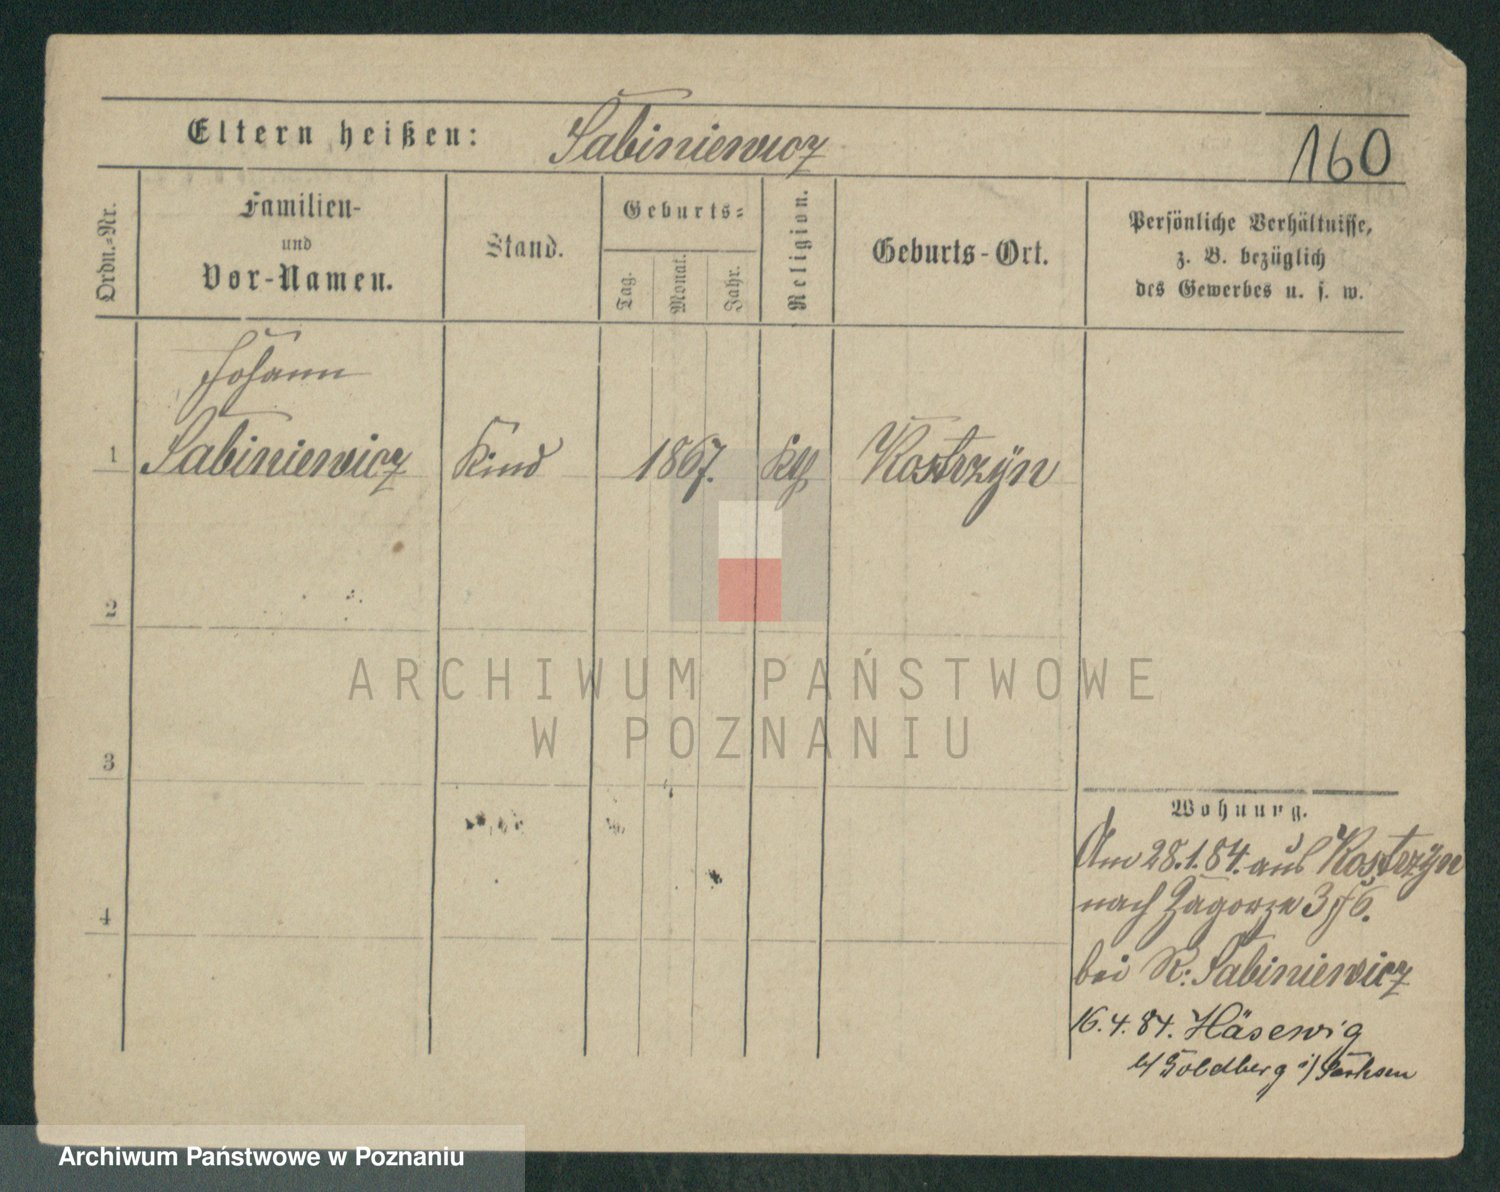 Eltern heißen: Sabiniewicz
160
Ordn.-Nr.
Familien-
und
Vor-Namen.
Stand.
Geburts-
Tag.
Monat.
Jahr.
Religion.
Geburts-Ort.
Persönliche Verhältnisse,
z. B. bezüglich
des Gewerbes u. s. w.
Johann
1 Sabiniewicz Kind 1867. kth Kostrzyn
2
3
4
Wohnung.
Am 28.1.84. aus Kostrzyn
nach Zagorze 5/6.
bei R: Sabiniewicz
16.4.84. Häsewig
b/ Goldberg i/ Sachsen
ARCHIWUM PAŃSTWOWE
W POZNANIU
Archiwum Państwowe w Poznaniu